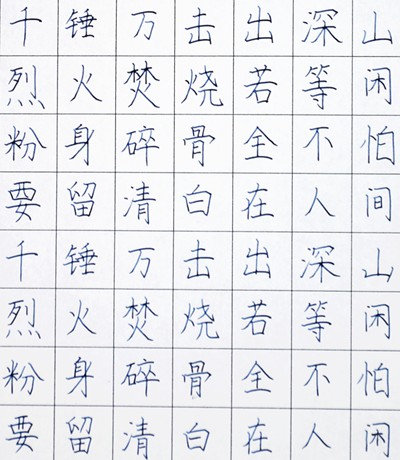 千锤万击出深山
烈火焚烧若等闲
粉身碎骨全不怕
要留清白在人间
千锤万击出深山
烈火焚烧若等闲
粉身碎骨全不怕
要留清白在人闲